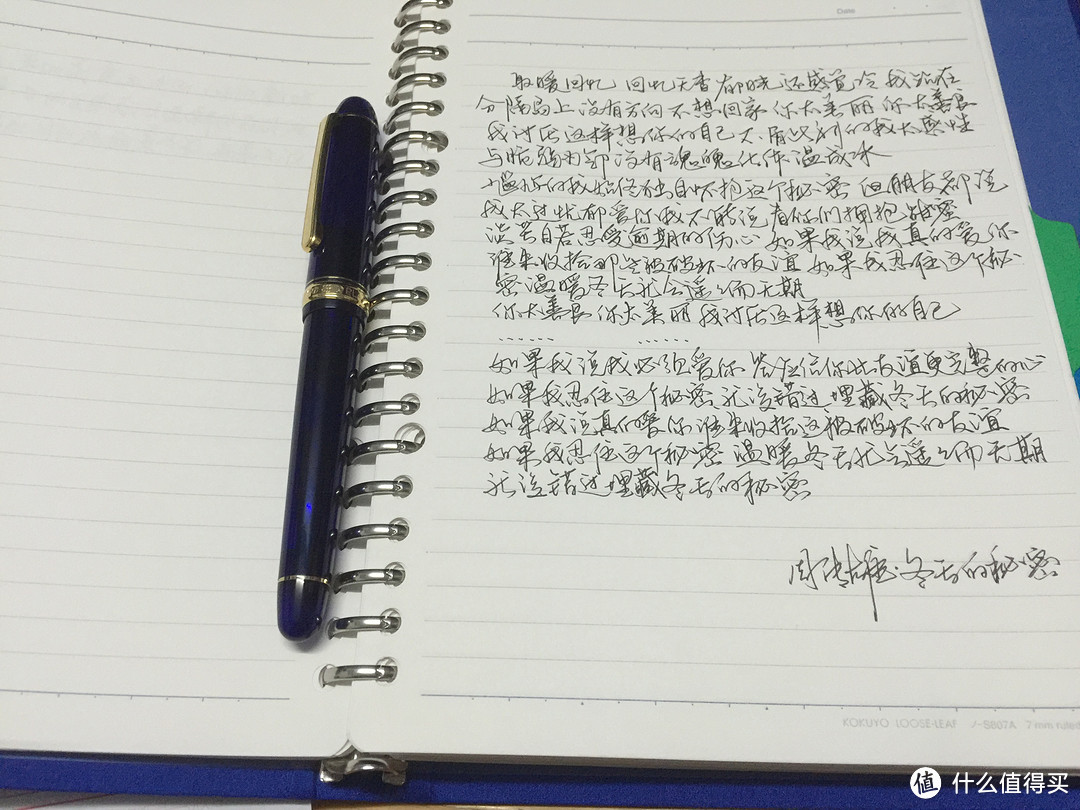 取暖回忆 回忆 还感觉冷 我站在
分隔岛上 没有方向 不想回家 你太美丽 你太善良
我讨厌这样想你的自己 不屑此刻的我太感性
与脆弱为邻 没有魂魄化作 冰
的我始终独自怀抱这个秘密 但朋友都说
我太过忧郁 爱你我不能说 看你们拥抱甜蜜
谈笑自若忍受逾期的伤心 如果我说我真的爱你
谁来收拾那些被破坏的友谊 如果我忍住这个秘
密 温暖冬天就会遥遥而无期
你太善良 你太美丽 我讨厌这样想你的自己
…… ……
如果我说我必须爱你 答应给你比友谊更完整的心
如果我忍住这个秘密 就该错过埋藏冬天的秘密
如果我说真的爱你 谁来收拾这被破坏的友谊
如果我忍住这个秘密 温暖冬天就会遥遥而无期
就该错过埋藏冬天的秘密
周传雄·冬天的秘密
Date
KOKUYO LOOSE-LEAF ノ-S807A 7mm ruled
值 什么值得买